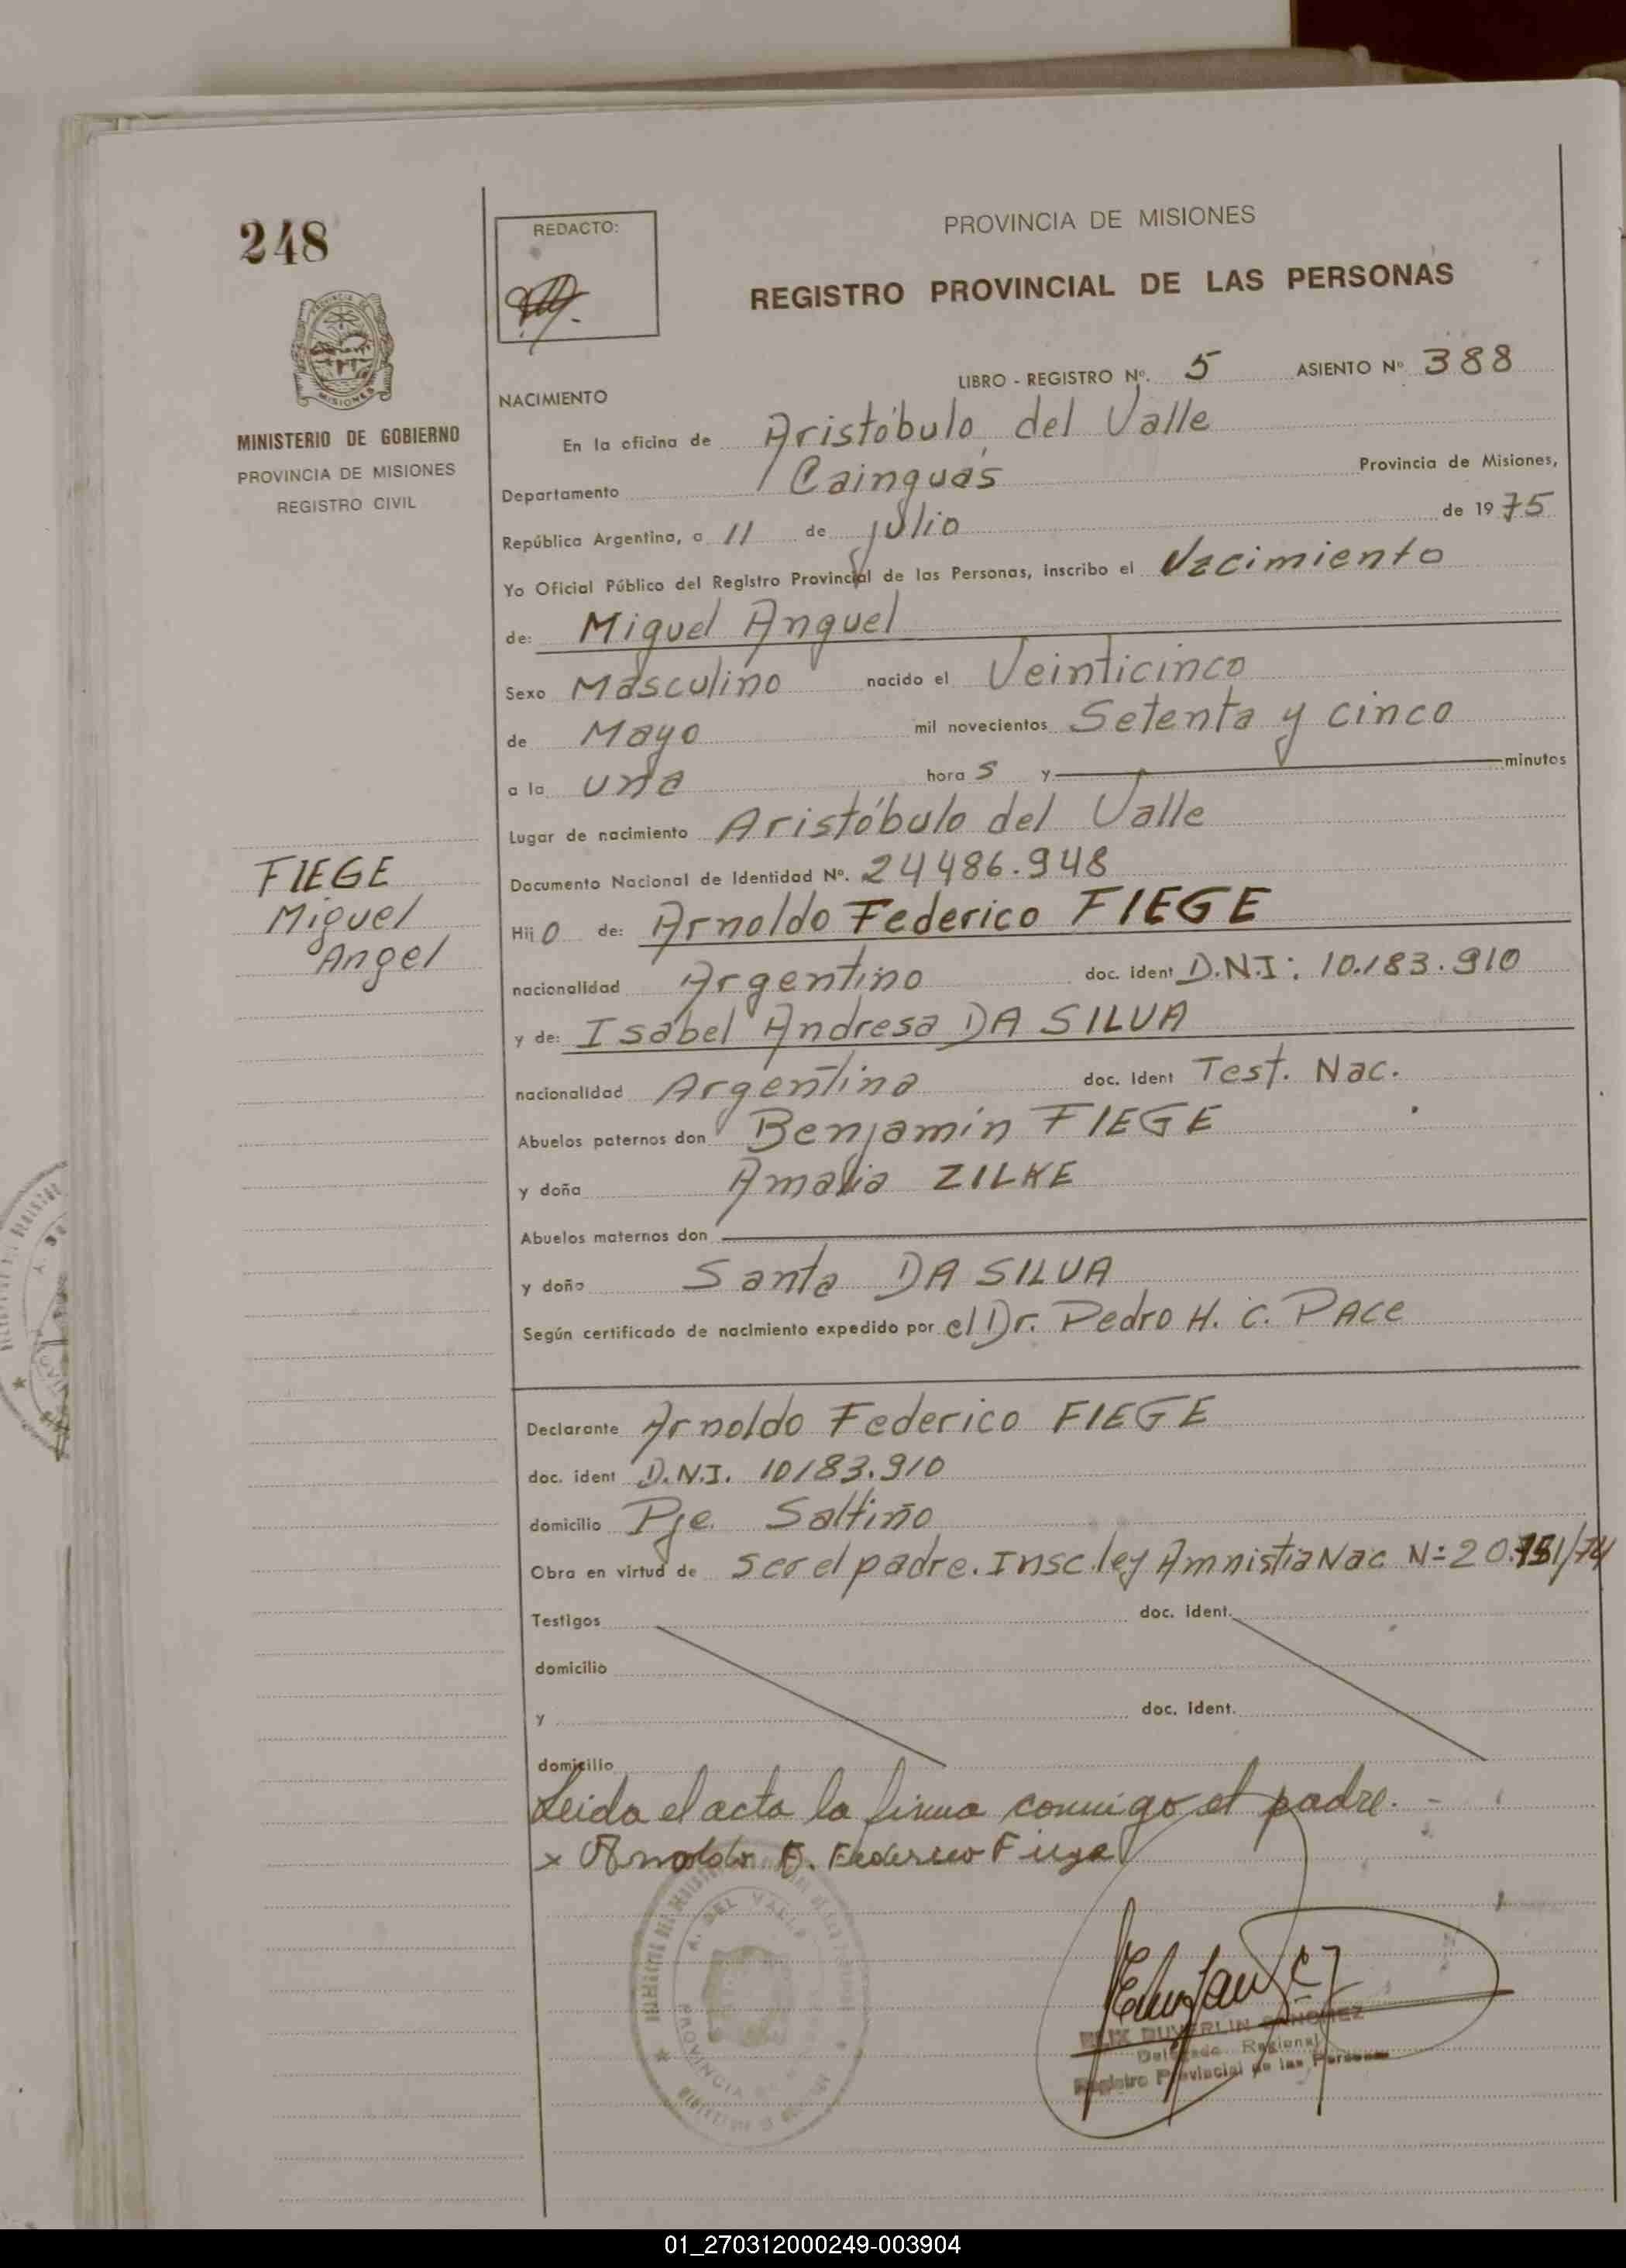 248
REDACTO:
PROVINCIA DE MISIONES
REGISTRO PROVINCIAL DE LAS PERSONAS
PROVINCIA DE
MISIONES
MINISTERIO DE GOBIERNO
PROVINCIA DE MISIONES
REGISTRO CIVIL
LIBRO - REGISTRO Nº. 5 ASIENTO Nº 388
NACIMIENTO
En la oficina de Aristóbulo del Valle
Departamento Cainguás Provincia de Misiones,
República Argentina, a 11 de julio de 1975
Yo Oficial Público del Registro Provincial de las Personas, inscribo el Nacimiento
de: Miguel Anguel
Sexo Masculino nacido el Veinticinco
de Mayo mil novecientos Setenta y cinco
a la una hora s y minutos
Lugar de nacimiento Aristóbulo del Valle
Documento Nacional de Identidad Nº. 24486.948
FIEGE
Miguel
Angel
Hijo de: Arnoldo Federico FIEGE
nacionalidad Argentino doc. ident D.N.I: 10.183.910
y de: Isabel Andresa DA SILVA
nacionalidad Argentina doc. ident Test. Nac.
Abuelos paternos don Benjamín FIEGE
y doña Amalia ZILKE
Abuelos maternos don
y doña Santa DA SILVA
Según certificado de nacimiento expedido por el Dr. Pedro H. C. PACe
Declarante Arnoldo Federico FIEGE
doc. ident D.N.I. 10183.910
domicilio Pje. Saltiño
Obra en virtud de ser el padre. Insc. ley Amnistia Nac Nº 20.751/74
Testigos doc. ident.
domicilio
y doc. ident.
domicilio
Leida el acta la firma conmigo el padre. -
x Arnoldo F. Federico Fiege
A. DEL VALLE
PROVINCIA DE
SANCHEZ
Delegado Regional
Registro Provincial de las Personas
01_270312000249-003904